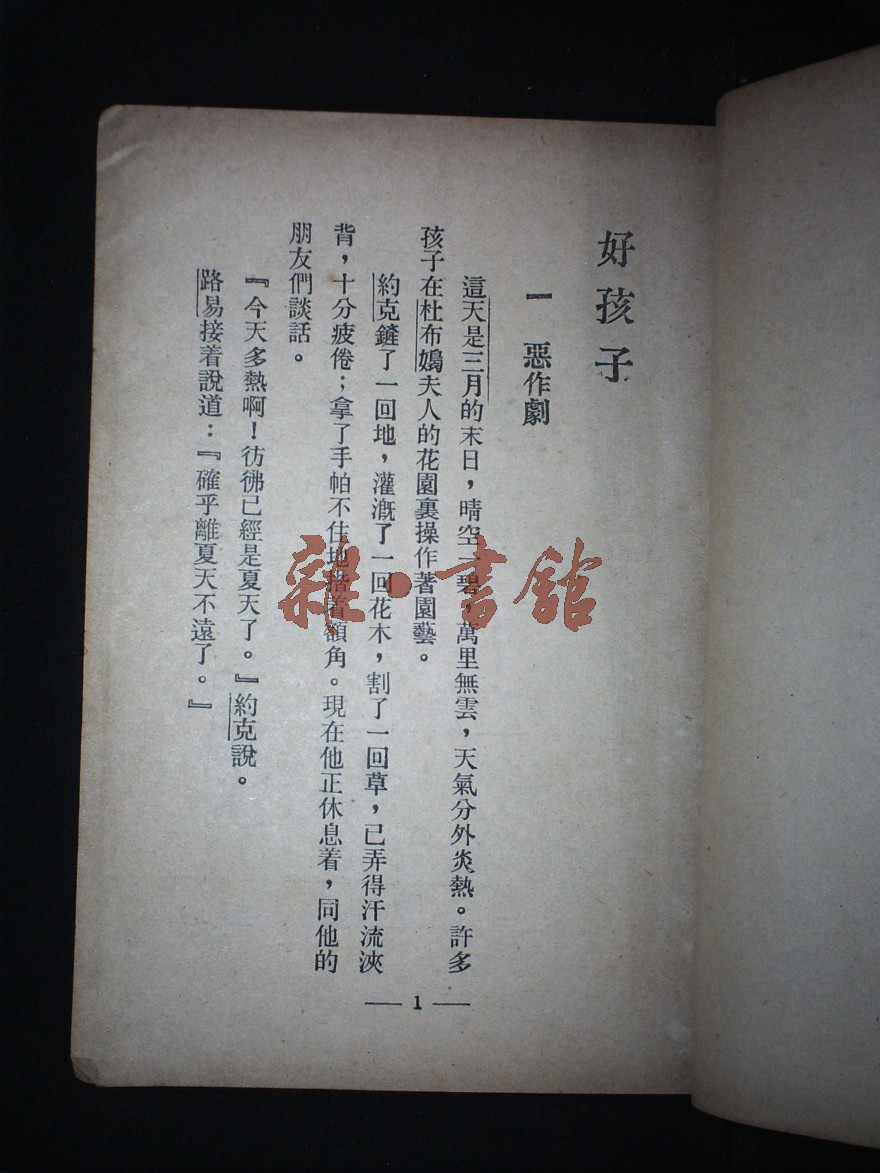 好孩子
一 惡作劇
這天是三月的末日，晴空一碧，萬里無雲，天氣分外炎熱。許多
孩子在杜布鴻夫人的花園裏操作著園藝。
約克鏟了一回地，灌溉了一回花木，割了一回草，已弄得汗流浹
背，十分疲倦；拿了手帕不住地揩着額角。現在他正休息着，同他的
朋友們談話。
『今天多熱啊！彷彿已經是夏天了。』約克說。
路易接着說道：『確乎離夏天不遠了。』
— 1 —
雜·書館